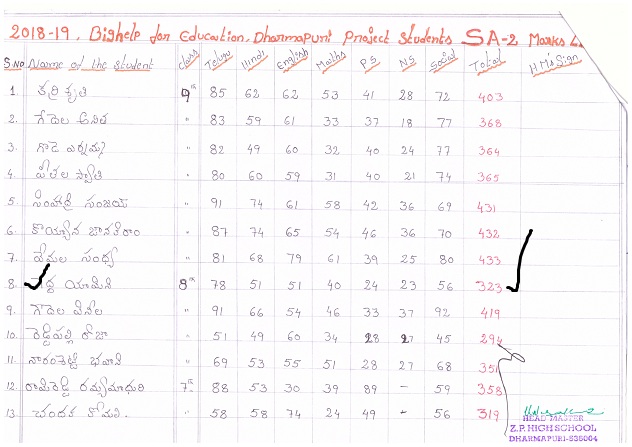 2018-19, Bighelp for Education, Dharmapuri Project Students SA-2 Marks
S.No Name of the Student class Telugu Hindi English Maths P.S N.S Social Total H.M's Sign
1. కర్రి కృతి 9th 85 62 62 53 41 28 72 403
2. గేదెల అనిత " 83 59 61 33 37 18 77 368
3. గౌడ ఎర్నమ్మ " 82 49 60 32 40 24 77 364
4. పీతల స్వాతి " 80 60 59 31 40 21 74 365
5. సింహాద్రి సంజయ్ " 91 74 61 58 42 36 69 431
6. కొయ్యాన జానకిరాం " 87 74 65 54 46 36 70 432
7. వేమల సంధ్య " 81 68 79 61 39 25 80 433
8. యామిని 8th 78 51 51 40 24 23 56 323
9. గౌడల వినీల " 91 66 54 46 33 37 92 419
10. రెడ్డిపల్లి రోజా " 51 49 60 34 28 27 45 294
11. నారంశెట్టి భవాని " 69 53 55 51 28 27 68 351
12. రామిరెడ్డి రమ్యమాధురి 7th 88 53 30 39 89 - 59 358
13. చందక సోమిని " 58 58 74 24 49 - 56 319
HEAD MASTER
Z.P. HIGH SCHOOL
DHARMAPURI-535004